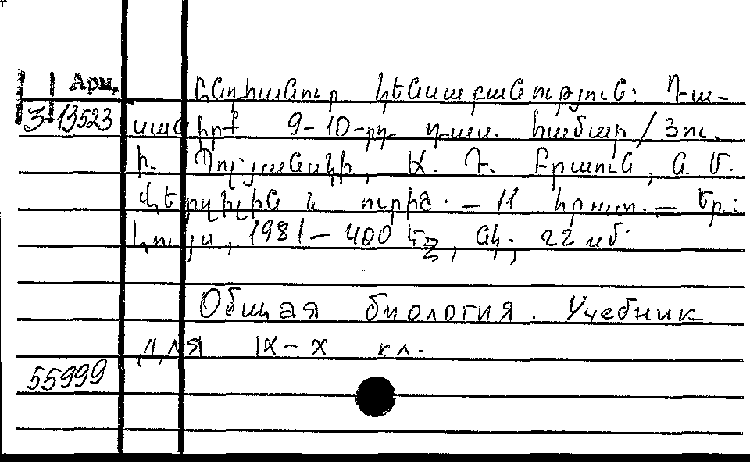 Арм.
3-13523
Ընդհանուր կենսաբանություն: Դա-
սագիրք 9-10-րդ դաս. համար / Յու.
Ի. Պոլյանսկի, Ա. Դ. Բրաուն, Ն. Մ.
Վերզիլին և ուրիշ. — 11 հրատ. — Եր.:
Լույս, 1981 — 400 էջ, նկ., 22 սմ:
Общая биология. Учебник
для IX-X кл.
55999